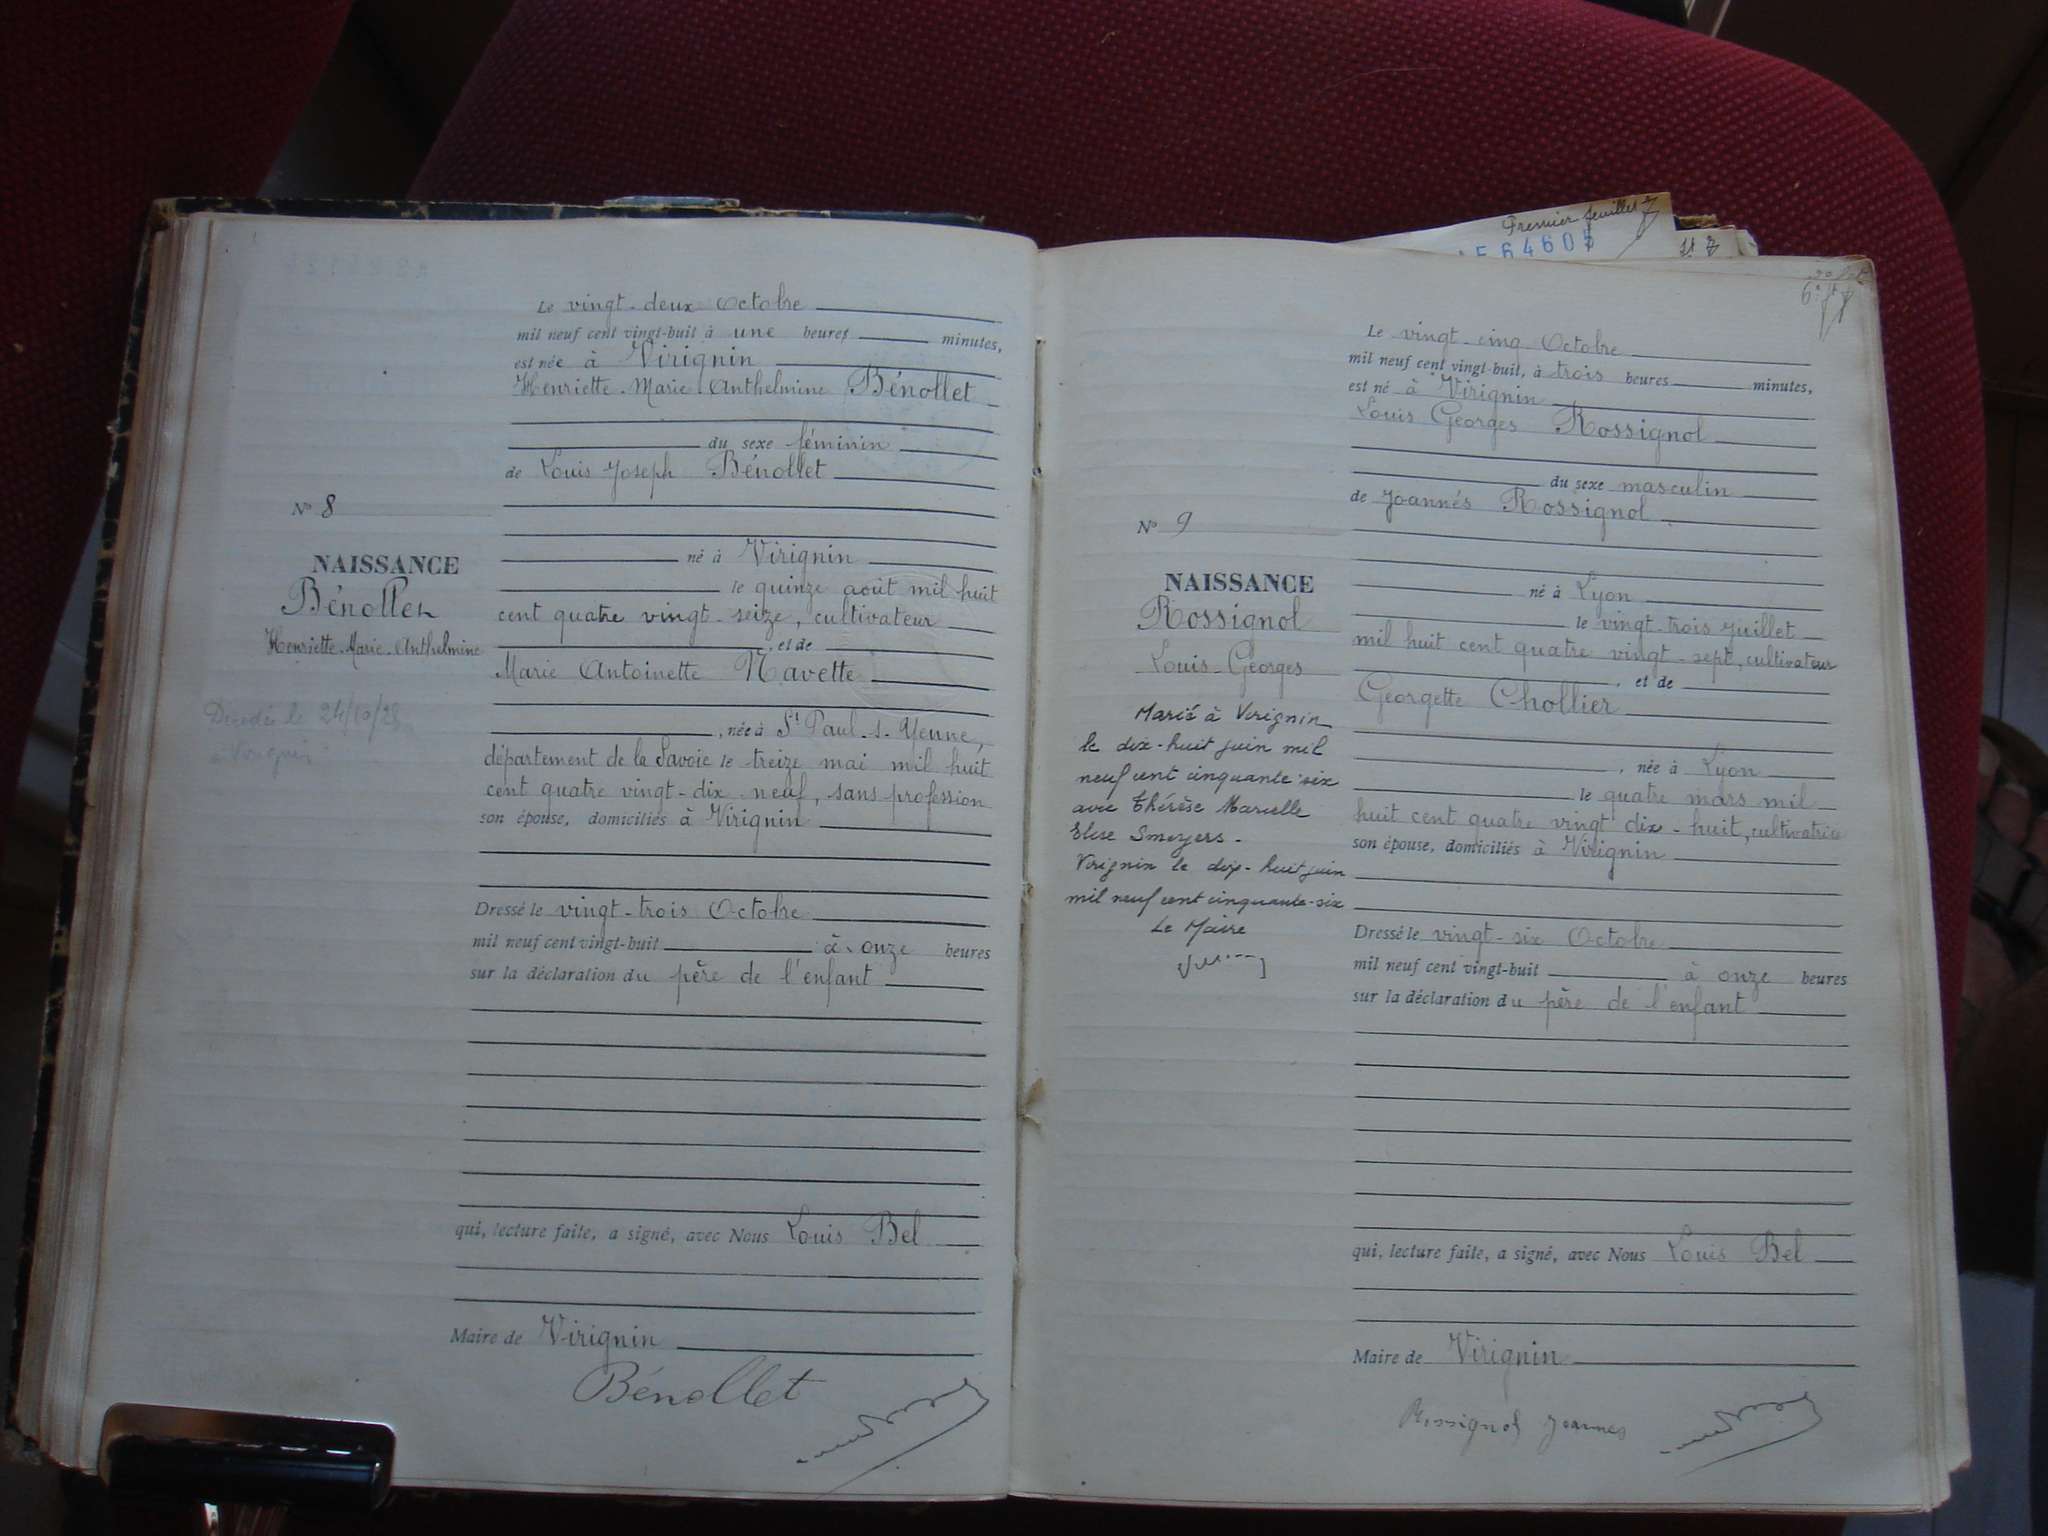 Le vingt-deux Octobre
mil neuf cent vingt-huit à une heures minutes,
est née à Virignin
Henriette-Marie-Anthelmine Bénollet
du sexe féminin
de Louis Joseph Bénollet
N° 8
né à Virignin
NAISSANCE
le quinze août mil huit
Bénollet
cent quatre vingt-seize, cultivateur
Henriette-Marie-Anthelmine
, et de
Marie Antoinette Navette
Decedée le 24/10/28
, née à St Paul-s-Yenne,
département de la Savoie le treize mai mil huit
cent quatre vingt-dix-neuf, sans profession
son épouse, domiciliés à Virignin
Dressé le vingt-trois Octobre
mil neuf cent vingt-huit à onze heures
sur la déclaration du père de l'enfant
qui, lecture faite, a signé, avec Nous Louis Bel
Maire de Virignin
Bénollet
Premier feuillet
64605
6e
Le vingt-cinq Octobre
mil neuf cent vingt-huit, à trois heures minutes,
est né à Virignin
Louis Georges Rossignol
du sexe masculin
de Joannés Rossignol
N° 9
NAISSANCE
né à Lyon
Rossignol
le vingt-trois Juillet
mil huit cent quatre vingt-sept, cultivateur
Louis-Georges
, et de
Georgette Chollier
Marié à Virignin
le dix-huit juin mil
neuf cent cinquante-six
avec Thérèse Marcelle
Elise Smeyers.
Virignin le dix-huit juin
mil neuf cent cinquante-six
Le Maire
, née à Lyon
le quatre mars mil
huit cent quatre vingt dix-huit, cultivatrice
son épouse, domiciliés à Virignin
Dressé le vingt-six Octobre
mil neuf cent vingt-huit à onze heures
sur la déclaration du père de l'enfant
qui, lecture faite, a signé, avec Nous Louis Bel
Maire de Virignin
Rossignol Joannes